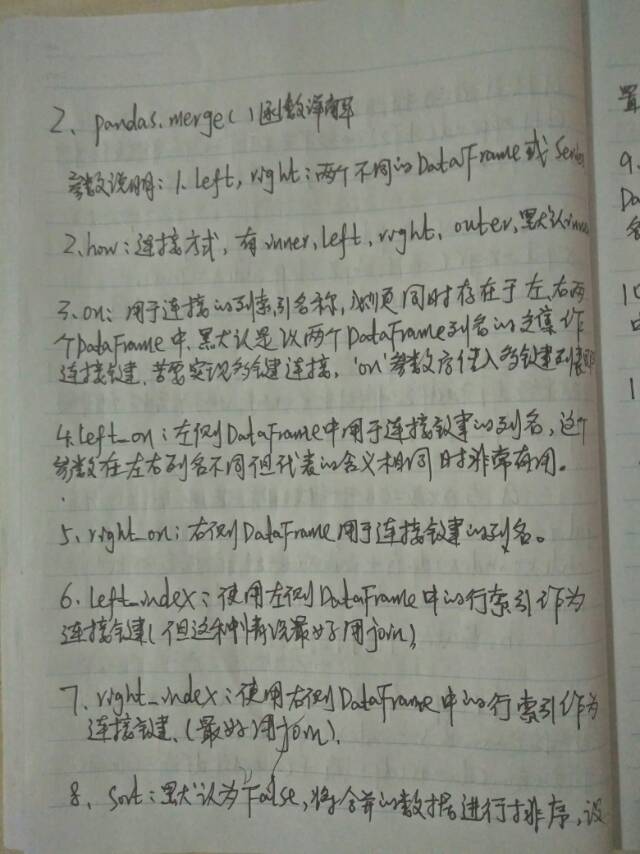 2、pandas.merge()函数详解
参数说明：1.left, right：两个不同的DataFrame或Series
2.how：连接方式，有inner, left, right, outer,默认inner
3.on：用于连接的列索引名称，必须同时存在于左、右两
个DataFrame中.默认是以两个DataFrame列名的交集作
连接键.若要实现多键连接，'on'参数应传入多键列表即
4.left_on：左侧DataFrame中用于连接键的列名，这个
参数在左右列名不同但代表的含义相同时非常有用。
5、right_on：右侧DataFrame用于连接键的列名。
6、left_index：使用左侧DataFrame中的行索引作为
连接键(但这种情况最好用join)
7、right_index：使用右侧DataFrame中的行索引作为
连接键、(最好用join)、
8、sort：默认为False,将合并的数据进行排序，设
置
9、
Da
10
1